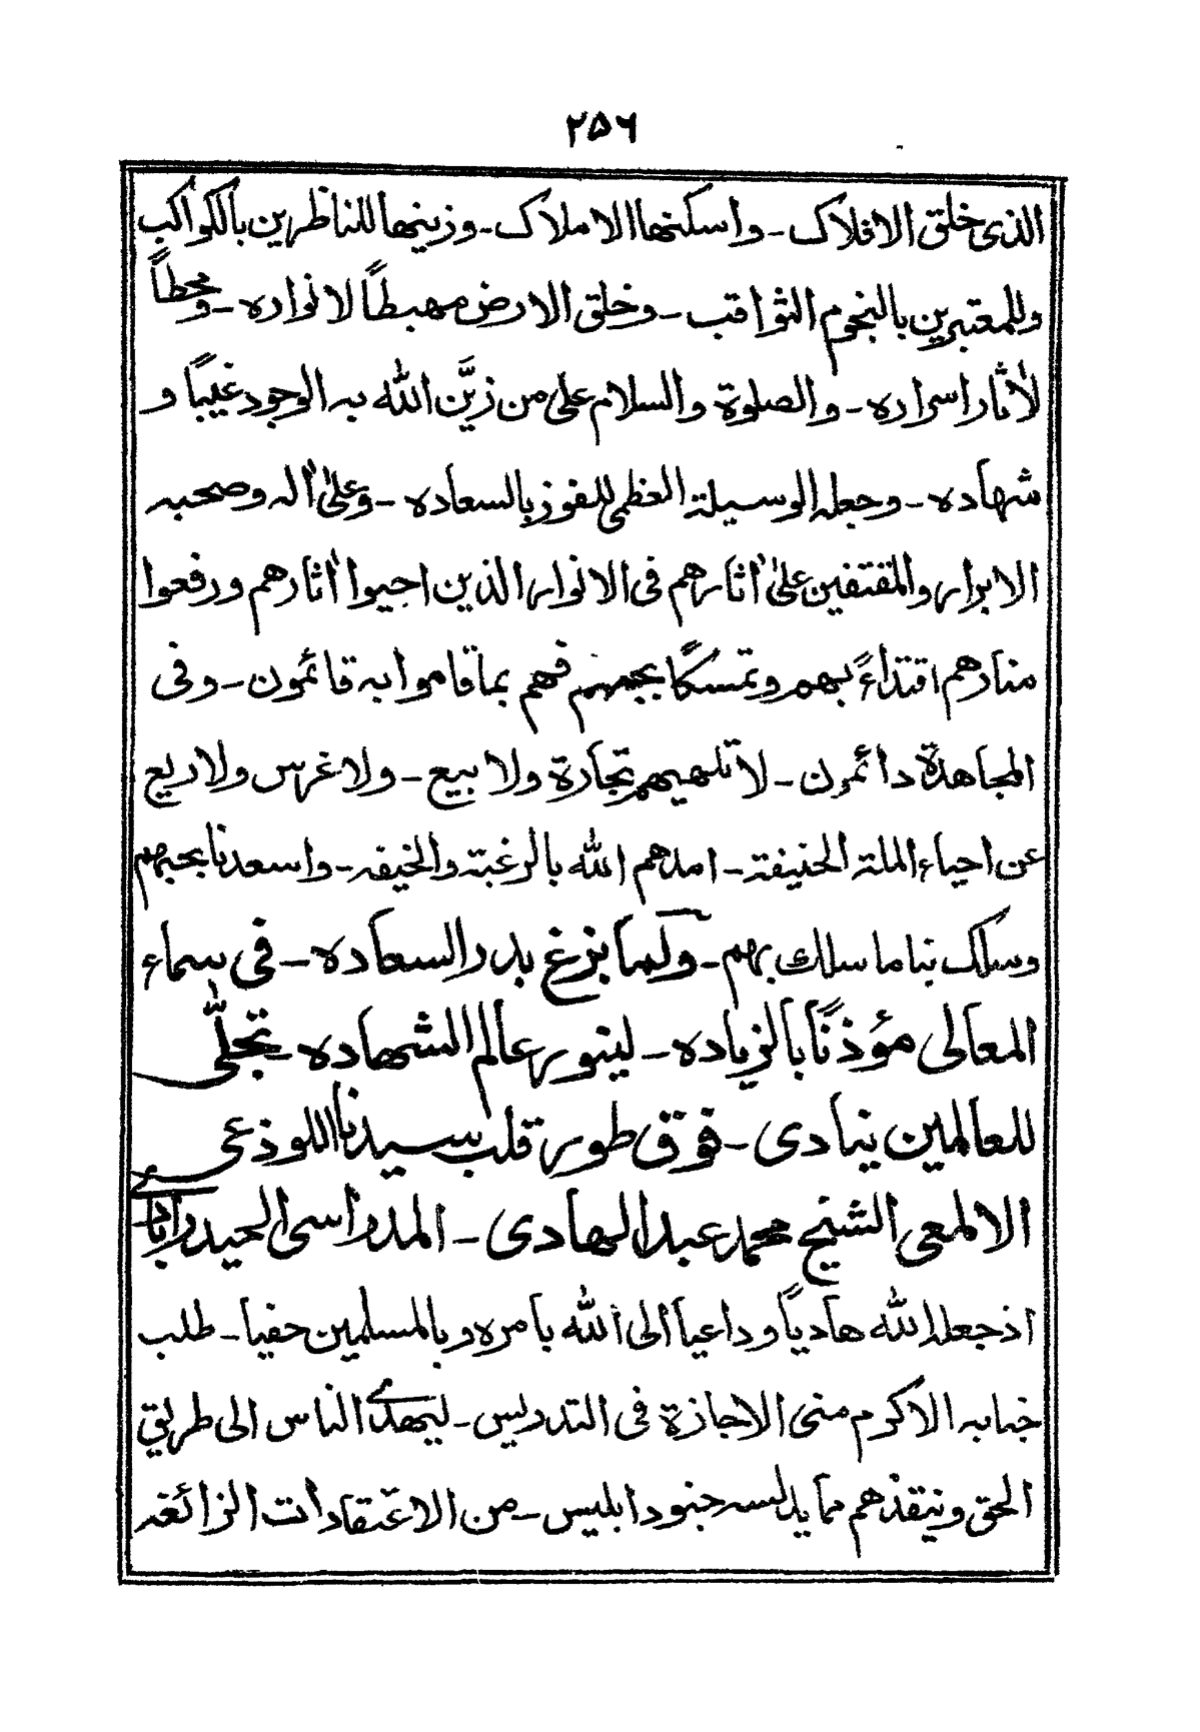 ۲۵۶
الذی خلق الافلاک ـ واسکنها الاملاک ـ وزینها للناظرین بالکواکب
وللمعتبرین بالنجوم الثواقب ـ وخلق الارض مهبطاً لانواره ـ ومحطاً
لأثار اسراره ـ والصلوة والسلام علی من زیَّن الله به الوجود غیباً و
شهاده ـ وجعله الوسیلة العظمی للفوز بالسعاده ـ وعلیٰ اٰله وصحبه
الابرار والمقتفین علیٰ اٰثارهم فی الانوار الذین احیوا اٰثارهم ورفعوا
منارهم اقتداءً بهم وتمسکًا بحبهم فهم بما قاموا به قائمون ـ وفی
المجاهدة دائمون ـ لا تلهیهم تجارة ولا بیع ـ ولا غرس ولا ریع
عن احیاء الملة الحنیفة ـ امدهم الله بالرغبة والخیفه ـ واسعدنا بحبهم
وسلک بنا ما سلک بهم ـ ولما بزغ بدر السعاده ـ فی سماء
المعالی مؤذنًا بالزیاده ـ لینور عالم الشهاده ـ تجلّٰی
للعالمین ینادی ـ فوق طور قلب سیدنا اللوذعی
الالمعی الشیخ محمد عبد الهادی ـ المدراسی الحیدراٰبادی
اذ جعله الله هادیاً وداعیاً الی الله بامره وبالمسلمین حفیا ـ طلب
جنابه الاکرم منی الاجازة فی التدریس ـ لیهدی الناس الی طریق
الحق وینقذهم مما یدلسه جنود ابلیس ـ من الاعتقادات الزائغه